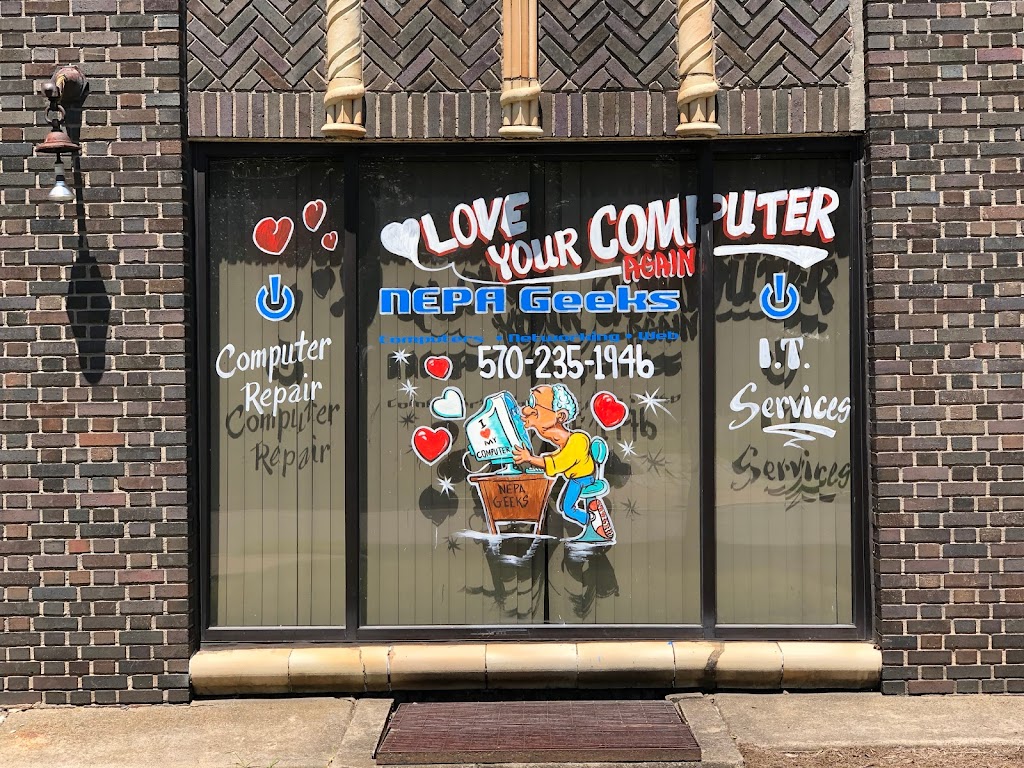 LOVE YOUR COMPUTER
AGAIN
NEPA Geeks
Computers • Networking • Web
570-235-1946
Computer
Repair
I.T.
Services
I
MY
COMPUTER
NEPA
GEEKS